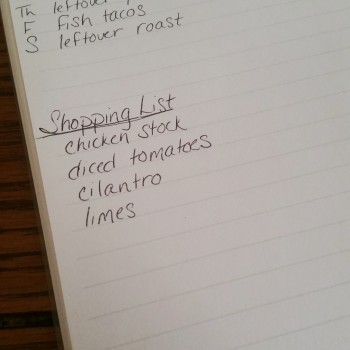 Th leftover
F fish tacos
S leftover roast
Shopping List
chicken stock
diced tomatoes
cilantro
limes